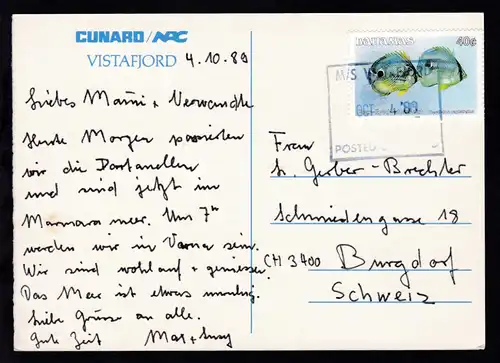 CUNARD/NAC
VISTAFJORD 4.10.89
Liebes Mami + Verwandte
Heute Morgen passierten
wir die Dardanellen
und sind jetzt im
Marmara meer. Um 7
werden wir in Varna sein.
Wir sind wohlauf + geniessen.
Das Meer ist etwas unruhig.
Liebe Grüsse an alle.
Gute Zeit
BAHAMAS 40¢
M/S
OCT 4 '89
POSTED
Frau
Gerber-Brechter
Schmiedengasse 18
CH 3400 Burgdorf
Schweiz